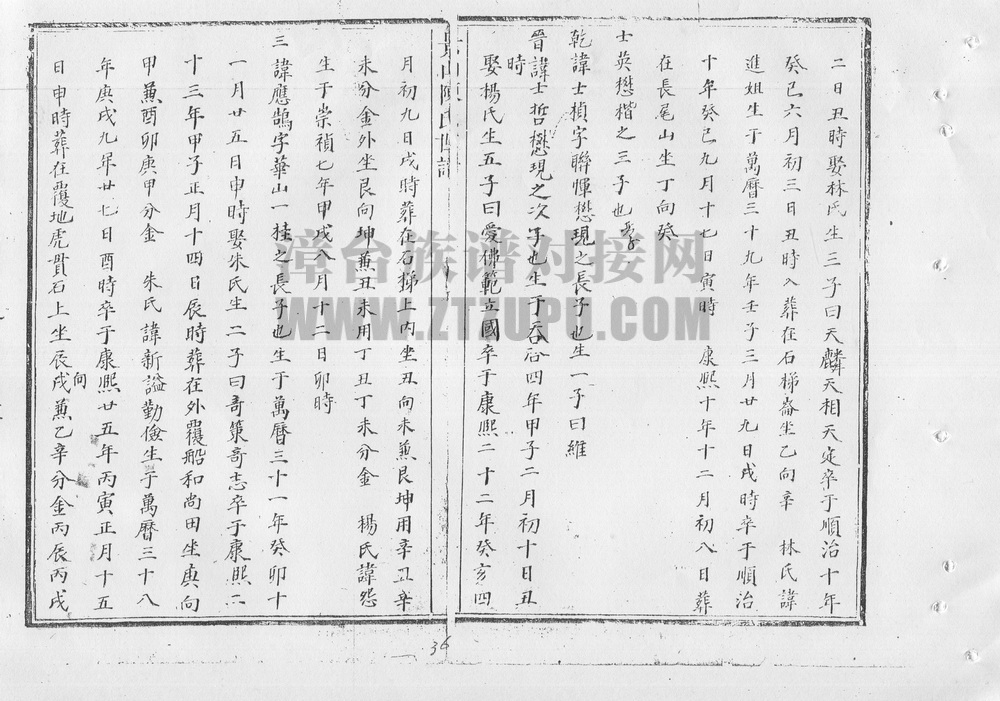 二日丑時娶林氏生三子曰天麟天相天定卒于順治十年
癸巳六月初三日丑時入葬在石梯崙坐乙向辛 林氏諱
進姐生于萬曆三十九年壬子三月廿九日戌時卒于順治
十年癸巳九月十七日寅時 康熙十年十二月初八日葬
在長尾山坐丁向癸
士英懋楷之三子也
乾諱士楨字聯惲懋現之長子也生一子曰維
晉諱士哲懋現之次子也生于天啟四年甲子二月初十日丑
時
娶楊氏生五子曰愛佛範立國卒于康熙二十二年癸亥四
陳氏世譜
月初九日戌時葬在石梯上内坐丑向未兼艮坤用辛丑辛
未分金外坐艮向坤兼丑未用丁丑丁未分金 楊氏諱怨
生于崇禎七年甲戌八月十二日卯時
三諱應鵠字華山一桂之長子也生于萬曆三十一年癸卯十
一月廿五日申時娶朱氏生二子曰奇策奇志卒于康熙二
十三年甲子正月十四日辰時葬在外覆船和尚田坐庚向
甲兼酉卯庚甲分金 朱氏諱新謚勤儉生于萬曆三十八
年庚戌九年廿七日酉時卒于康熙廿五年丙寅正月十五
日申時葬在覆地虎貫石上坐辰向戌兼乙辛分金丙辰丙戌
36
漳台族谱对接网
WWW.ZTZUPU.COM